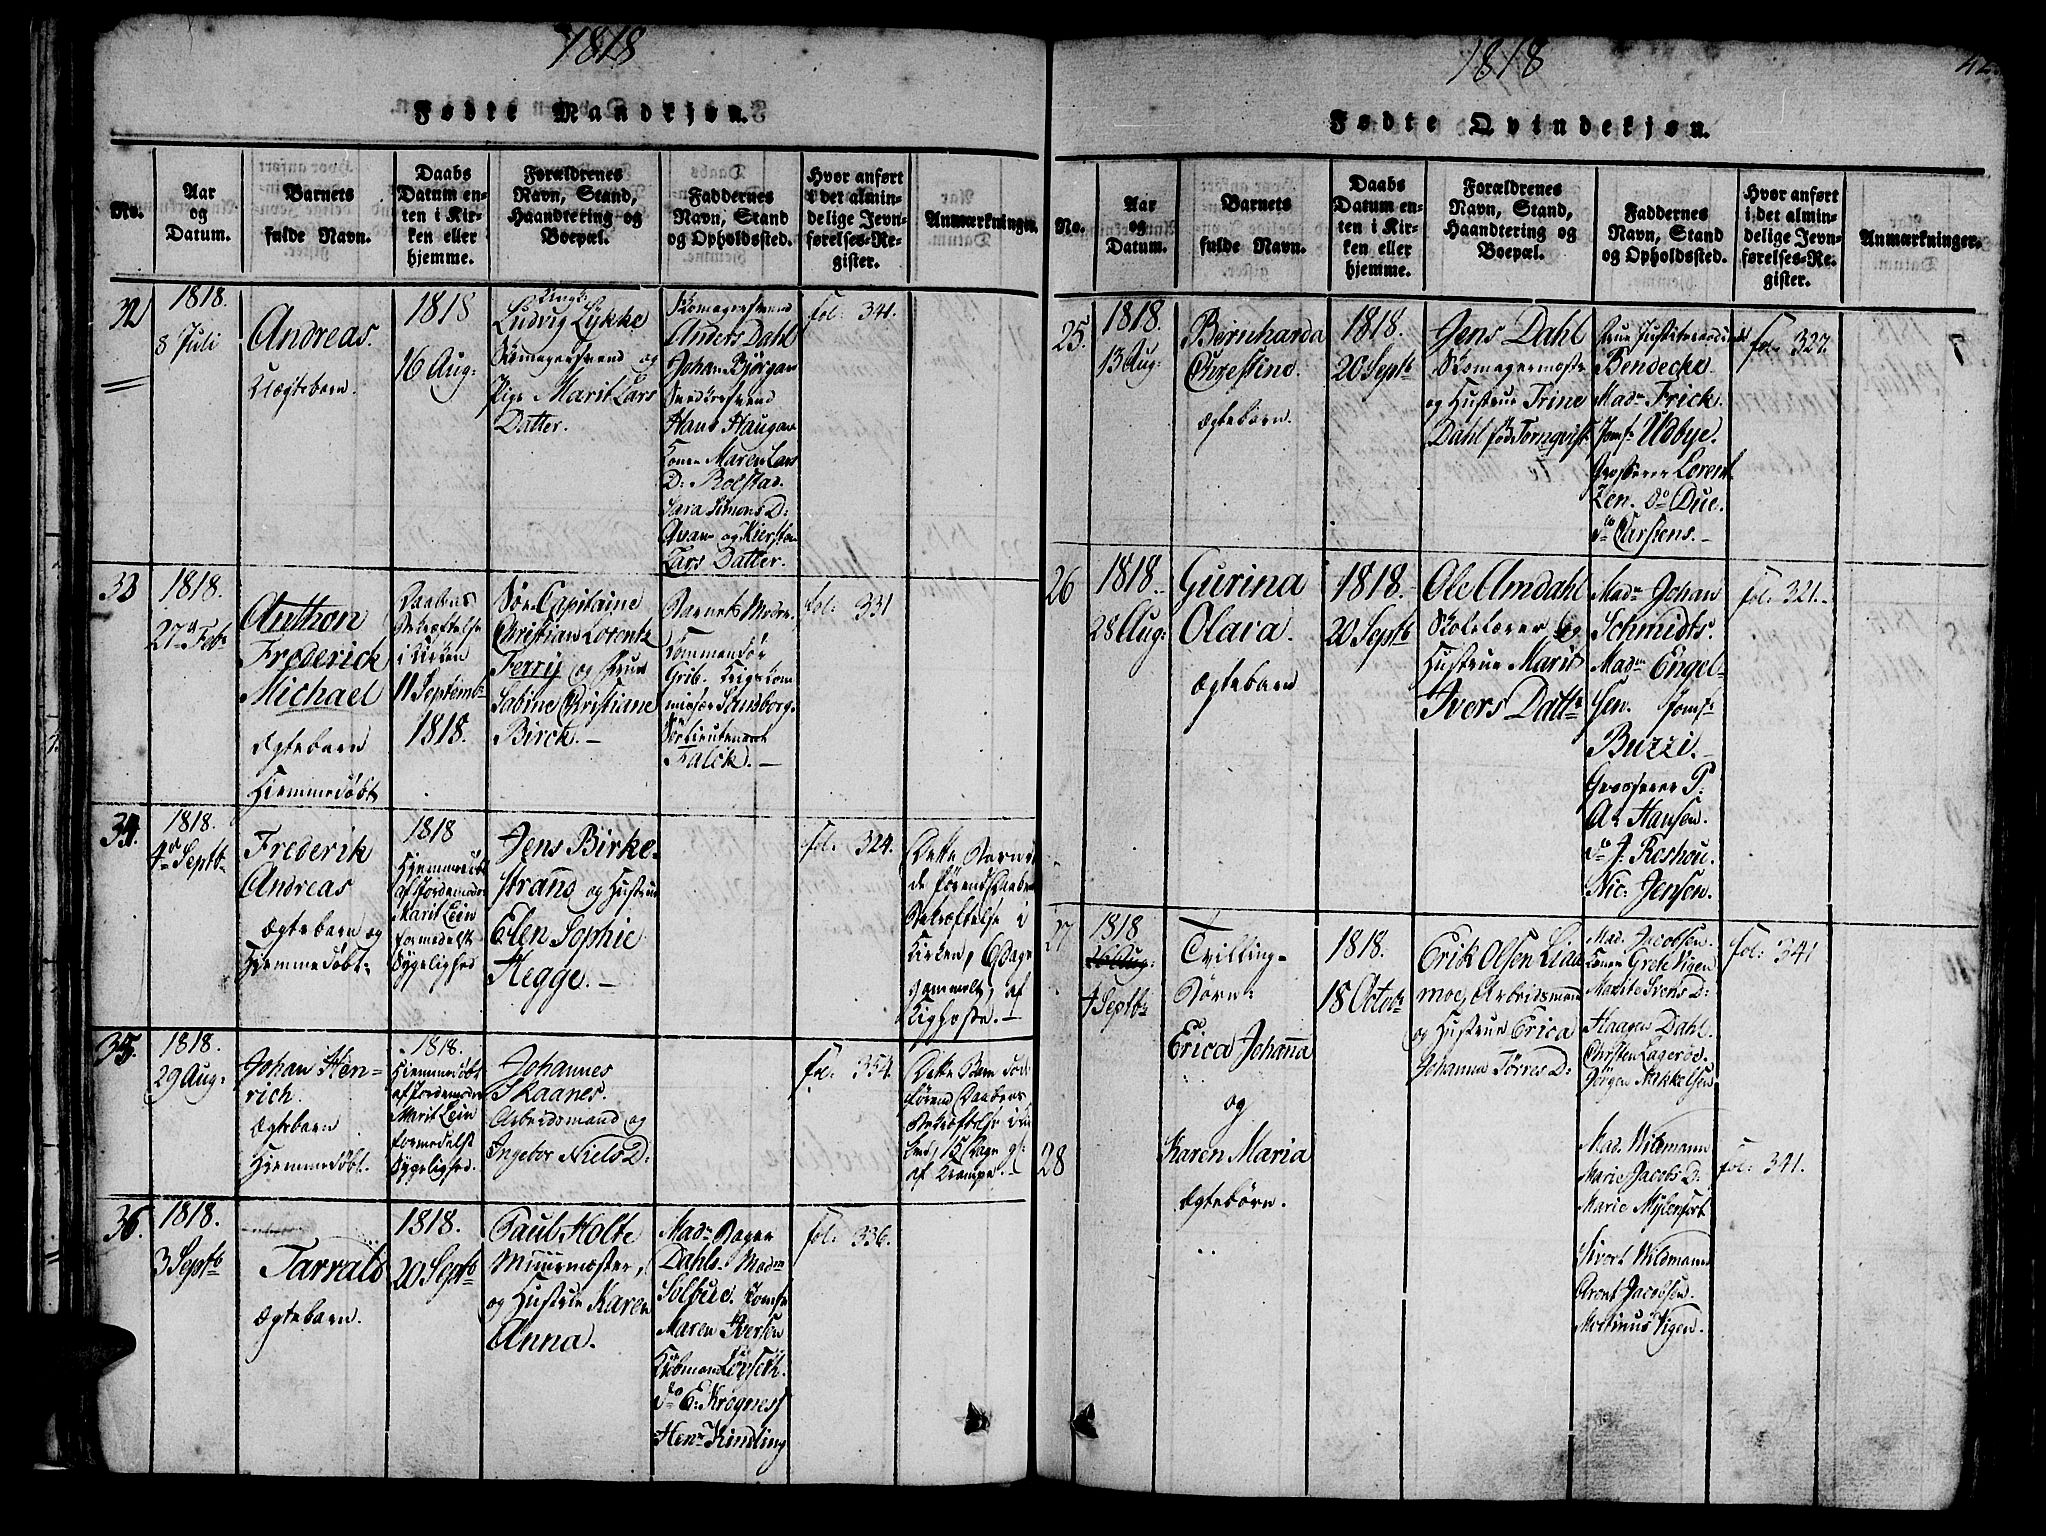 1818
Fødte Mandkjøn.
No.
Aar
og
Datum.
Barnets
fulde Navn.
Daabs
Datum en-
ten i Kir-
ken eller
hjemme.
Forældrenes
Navn, Stand,
Haandtering og
Boepæl.
Faddernes
Navn, Stand
og Opholdssted.
Hvor anført
i det almin-
delige Jevn-
førelses-Re-
gister.
Anmærkninger.
32
1818.
8 Juli
Andreas.
Uægtebarn.
1818
16 Aug:
Ungk:
Ludvig Lykke
Skomagersvend og
Pige Marit Lars
Datter.
Skomagersvend
Anders Dahl
Johan Bjørgan
Snedkersvend
Hans Haugan
Konen Maren Lars
D: Roestad.
Sara Simons D:
og Kiersten
Lars Datter.
fol: 341.
33
1818.
27de Febr
Anthon
Frederich
Michael
Ægtebarn
Hiemmedøbt
Daabens
Bekræftelse
i Kirken
11 Septembr
1818.
Søe Capitaine
Christian Lorentz
Ferry og Frue
Sabine Christiane
Birck.
Barnets Moder.
Commendør
Grib. Krigs Com
missær Sandsborg.
Søe Lieutenant
Falck.
fol: 331
34.
1818.
4de Septbr
Frederik
Andreas
Ægtebarn og
Hjemmedøbt
1818
Hjemmedøbt
af Jordemoder
Marit Lein
formedelst
Sygelighed
Jens Birke-
strand og Hustrue
Elen Sophie
Hegge.
fol: 324.
Dette Barn
døde førend Daabens
Bekræftelse i
Kirken, 6 Dage
gammelt, af
35.
1818.
29 Aug:
Johan Hen-
rich.
Ægtebarn
Hjemmedøbt.
1818.
Hiemmedøbt
af Jordemoder
Marit Lein
formedelst
Sygelighed.
Johannes
Skaanes.
Arbeidsmand og
Ingebor Niels D:
fol: 354.
Dette Barn døde
førend Daabens
Bekræftelse i Kir
ken, 15 Dage gl:
af Krampe.
36.
1818.
3 Septb
Tarrald
Ægtebarn.
1818.
20 Septb
Paul Holte
Muurmester,
og Hustrue Karen
Anna.
Madm Bager
Dahls. Madm
Solbue. Jomfr
Maren Iversen
Kiøbmand Løvseth.
do E: Krogness
Henr Kindling
fol: 336.
1818
42.
Fødte Qvindekjøn.
No.
Aar
og
Datum.
Barnets
fulde Navn.
Daabs
Datum en-
ten i Kir-
ken eller
hjemme.
Forældrenes
Navn, Stand,
Haandtering og
Boepæl.
Faddernes
Navn, Stand
og Opholdssted.
Hvor anført
i det almin-
delige Jevn-
førelses-Re-
gister.
Anmærkninger.
25.
1818.
13 Aug:
Bernharda
Christina.
Ægtebarn.
1818.
20 Septb
Jens Dahl
Skomagermester
og Hustrue Trine
Dahl fød Tornqvist.
Frue Justitsraadinde
Bendecke.
Madm Frick.
Jomfr Udbye.
Grosserer Lorent-
zen. do Due.
do Carstens.
fol: 327.
26
1818.
28 Aug:
Gurina
Olava.
Ægtebarn
1818.
20 Septb
Ole Amdahl
Skolelærer og
Hustrue Marit
Ivers Dattr
Madm Johan
Schmidts.
Madm Engel-
sen. Jomfr
Buzzi.
Grosserer P.
A. Hansen.
do J. Roshou.
Nic: Jensen.
fol: 321.
27
1818
4 Septbr
Tvilling-
Børn:
Erica Johanna
og
28
Karen Maria
Ægtebørn.
1818.
18 Octobr
Erik Olsen Lian
moe, Arbeidsmand
og Hustrue Erica
Johanna Tørres D:
Mad. Jacobsen.
Konen Grete Vigen
Marite Svens D:
Haagen Dahl.
Christen Lagerøe.
Jørgen Mikkelsen
fol: 341
Mad. Widmann
Marie Jacobs D:
Marie Mylenfort
Sivert Widmann
Arent Jacobsen.
Martinus Vigen.
fol: 341.